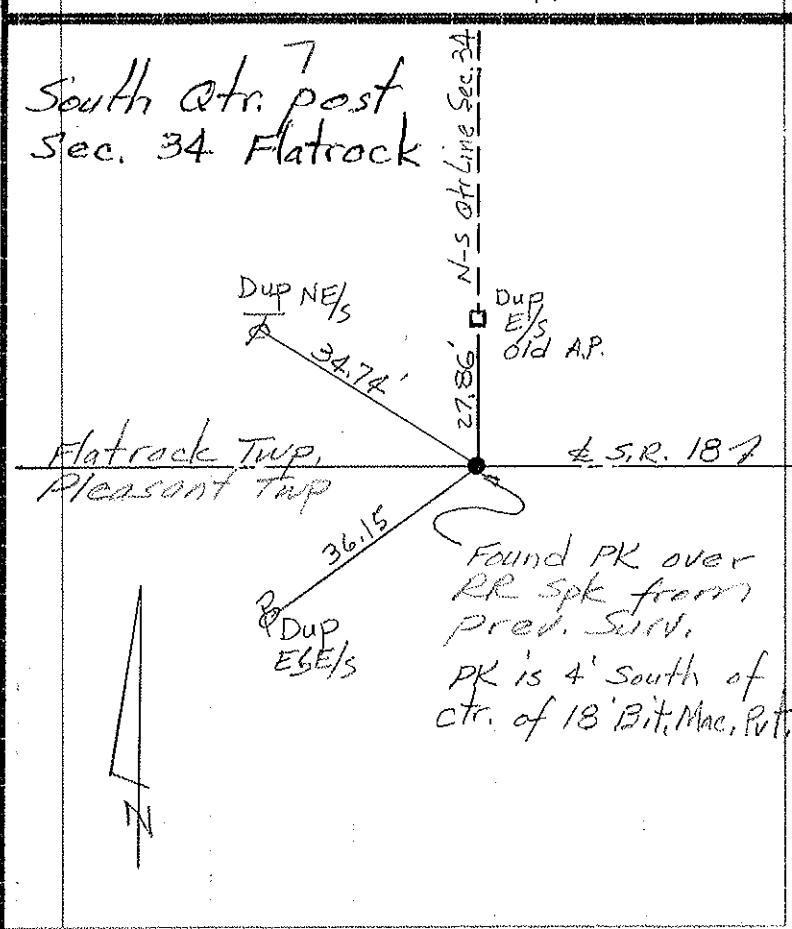 South Qtr. post
Sec. 34 Flatrock
N-S Qtr Line Sec. 34
Dup NE/s
34.74'
Dup
E/s
old A.P.
27.86'
Flatrock Twp.
Pleasant Twp
℄ S.R. 18
36.15
Found PK over
RR Spk from
prev. Surv.
PK is 4' South of
ctr. of 18' Bit. Mac. Pvt.
Dup
E/s
N